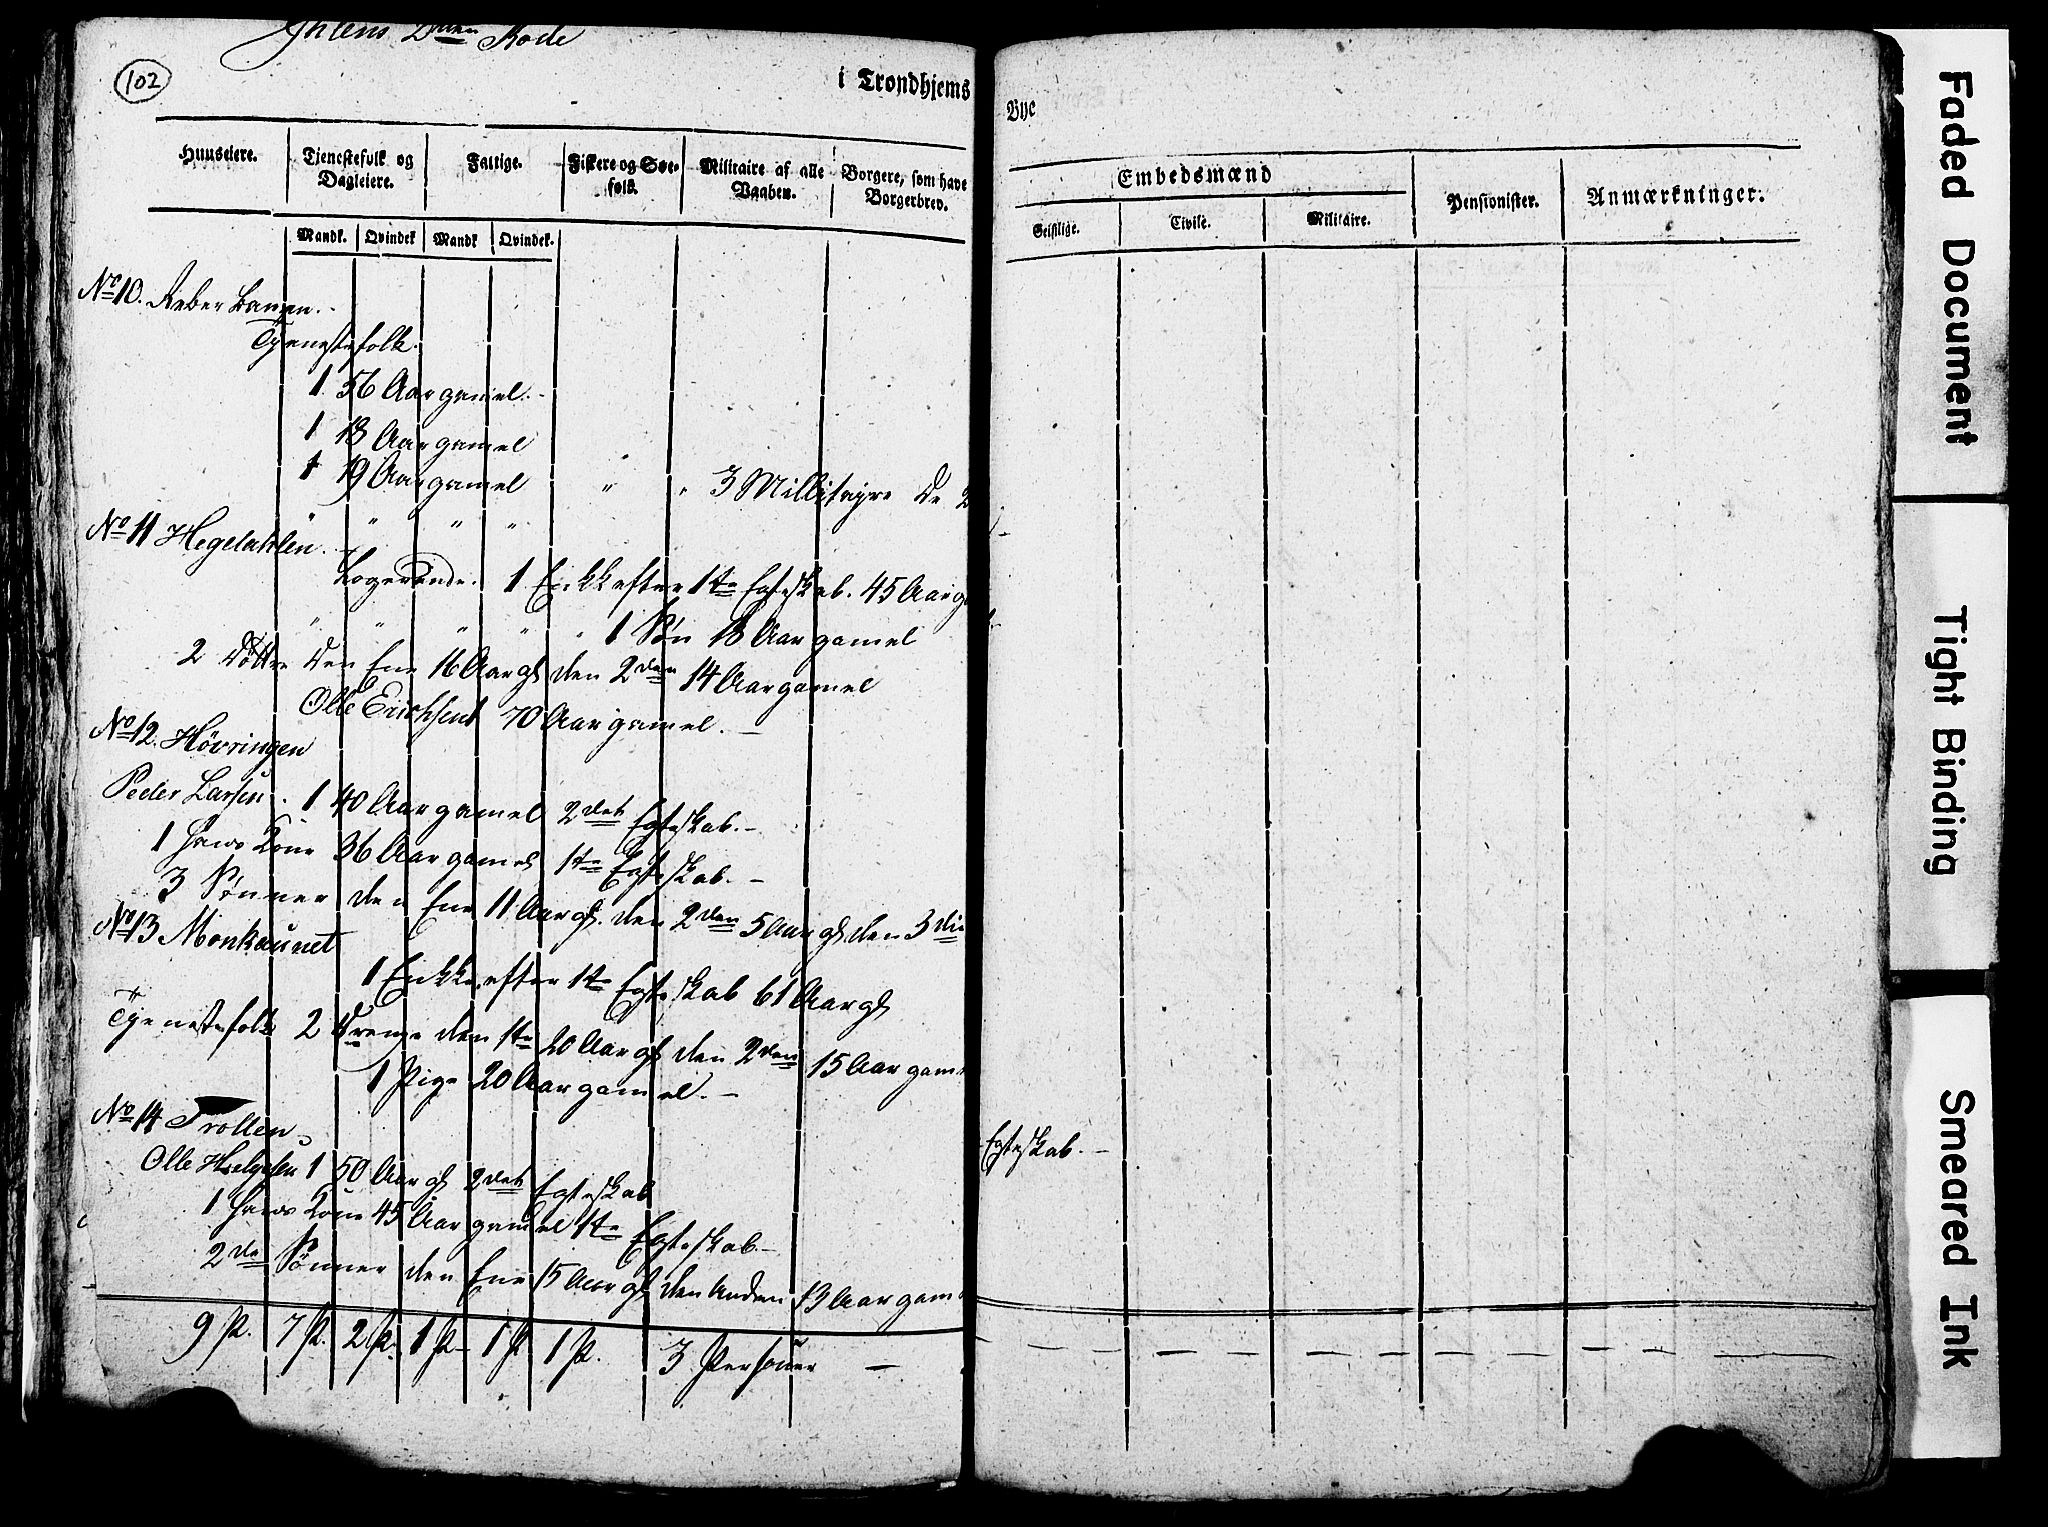 Ihlens 2den Rode
102
i Trondhjems
Bye
Huuseiere.
Tjenestefolk og Dagleiere.
Fattige.
Fiskere og Søefolk.
Militaire af alle Vaaben.
Borgere, som have Borgerbrev.
Embedsmænd
Pensionister.
Anmærkninger.
Mandk. Qvindek Mandk Qvindek.
Geistlige. Civile. Militaire.
No 10. Reberbanen.
Tjenestefolk.
1 56 Aar gamel.
1 18 Aar gamel
1 19 Aar gamel " " 3 Millitaire De 2
" " " "
No 11 Hegelahlen
Logerende. 1 Enkke efter 1te Egteskab. 45 Aar g
" " " " " 1 Søn 18 Aar gamel
2 Døttre den Ene 16 Aar gl den 2den 14 Aar gamel
Olle Erichsent 70 Aar gamel.
No 12. Høvringen
Peder Larsen. 1 40 Aar gamel 2det Egteskab.
1 Hans Kone 36 Aar gamel 1te Egteskab.
3 Sønner den Ene 11 Aar gl. den 2den 5 Aar gl. den 3die
No 13 Monkaunet
1 Enkke efter 1te Egteskab 61 Aar gl
Tjenestefolk 2 Drenge den 1te 20 Aar gl den 2den 15 Aar gam
1 Pige 20 Aar gamel.
No 14 Trollen
Egteskab.
Olle Helgesen 1 50 Aar gl 2det Egteskab
1 Hans Kone 45 Aar gamel 1te Egteskab
2de Sønner den Ene 15 Aar gl den Anden 13 Aar gam
9 P. 7 P. 2 P. 1 P 1 P 1 P. 3 Personer
Faded Document
Tight Binding
Smeared Ink